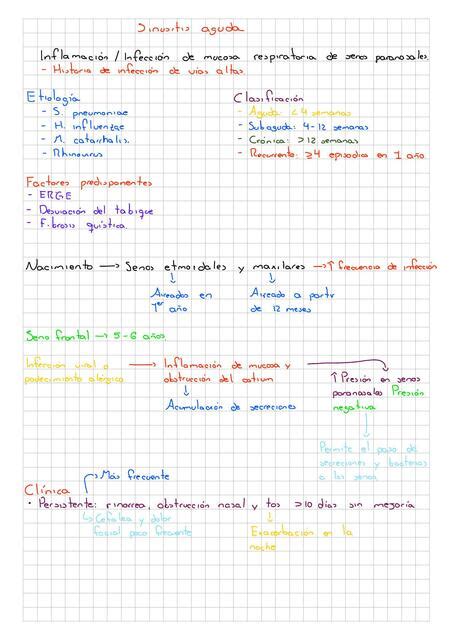 Sinusitis aguda
Inflamación / Infección de mucosa respiratoria de senos paranasales.
- Historia de infección de vías altas.
Etiología
- S. pneumoniae
- H. influenzae
- M. catarrhalis.
- Rhinovirus
Clasificación
- Aguda: < 4 semanas
- Subaguda: 4-12 semanas
- Crónica: > 12 semanas
- Recurrente: ≥4 episodios en 1 año
Factores predisponentes
- ERGE
- Desviación del tabique
- Fibrosis quística.
Nacimiento → Senos etmoidales y maxilares → ↑ frecuencia de infección
↓ ↓
Aireados en Aireado a partir
1er año de 12 meses
Seno frontal → 5-6 años.
Infección viral o → Inflamación de mucosa y
padecimiento alérgico obstrucción del ostium
↓
Acumulación de secreciones
↑ Presión en senos
paranasales Presión
negativa
↓
Permite el paso de
secreciones y bacterias
a los senos.
Clínica
→ Más frecuente
• Persistente: rinorrea, obstrucción nasal y tos >10 días sin mejoría
↳ Cefalea y dolor
facial poco frecuente
↓
Exacerbación en la
noche